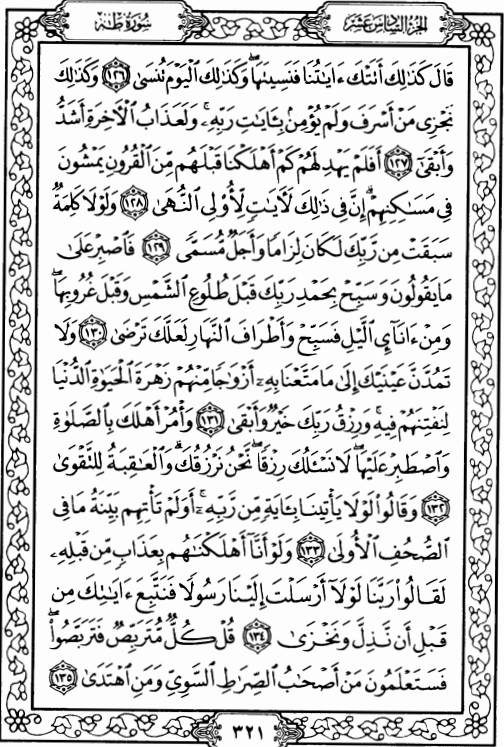 سورة طه الجزء السادس عشر
قَالَ كَذَٰلِكَ أَتَتْكَ ءَايَٰتُنَا فَنَسِيتَهَا ۖ وَكَذَٰلِكَ ٱلْيَوْمَ تُنسَىٰ ١٢٦ وَكَذَٰلِكَ
نَجْزِى مَنْ أَسْرَفَ وَلَمْ يُؤْمِنۢ بِـَٔايَٰتِ رَبِّهِۦ ۚ وَلَعَذَابُ ٱلْءَاخِرَةِ أَشَدُّ
وَأَبْقَىٰٓ ١٢٧ أَفَلَمْ يَهْدِ لَهُمْ كَمْ أَهْلَكْنَا قَبْلَهُم مِّنَ ٱلْقُرُونِ يَمْشُونَ
فِى مَسَٰكِنِهِمْ ۗ إِنَّ فِى ذَٰلِكَ لَءَايَٰتٍ لِّأُو۟لِى ٱلنُّهَىٰ ١٢٨ وَلَوْلَا كَلِمَةٌ
سَبَقَتْ مِن رَّبِّكَ لَكَانَ لِزَامًا وَأَجَلٌ مُّسَمًّى ١٢٩ فَٱصْبِرْ عَلَىٰ
مَا يَقُولُونَ وَسَبِّحْ بِحَمْدِ رَبِّكَ قَبْلَ طُلُوعِ ٱلشَّمْسِ وَقَبْلَ غُرُوبِهَا ۖ
وَمِنْ ءَانَآئِ ٱلَّيْلِ فَسَبِّحْ وَأَطْرَافَ ٱلنَّهَارِ لَعَلَّكَ تَرْضَىٰ ١٣٠ وَلَا
تَمُدَّنَّ عَيْنَيْكَ إِلَىٰ مَا مَتَّعْنَا بِهِۦٓ أَزْوَٰجًا مِّنْهُمْ زَهْرَةَ ٱلْحَيَوٰةِ ٱلدُّنْيَا
لِنَفْتِنَهُمْ فِيهِ ۚ وَرِزْقُ رَبِّكَ خَيْرٌ وَأَبْقَىٰ ١٣١ وَأْمُرْ أَهْلَكَ بِٱلصَّلَوٰةِ
وَٱصْطَبِرْ عَلَيْهَا ۖ لَا نَسْـَٔلُكَ رِزْقًا ۖ نَّحْنُ نَرْزُقُكَ ۗ وَٱلْعَٰقِبَةُ لِلتَّقْوَىٰ
١٣٢ وَقَالُوا۟ لَوْلَا يَأْتِينَا بِـَٔايَةٍ مِّن رَّبِّهِۦٓ ۚ أَوَلَمْ تَأْتِهِم بَيِّنَةُ مَا فِى
ٱلصُّحُفِ ٱلْأُولَىٰ ١٣٣ وَلَوْ أَنَّآ أَهْلَكْنَٰهُم بِعَذَابٍ مِّن قَبْلِهِۦ
لَقَالُوا۟ رَبَّنَا لَوْلَآ أَرْسَلْتَ إِلَيْنَا رَسُولًا فَنَتَّبِعَ ءَايَٰتِكَ مِن
قَبْلِ أَن نَّذِلَّ وَنَخْزَىٰ ١٣٤ قُلْ كُلٌّ مُّتَرَبِّصٌ فَتَرَبَّصُوا۟ ۖ
فَسَتَعْلَمُونَ مَنْ أَصْحَٰبُ ٱلصِّرَٰطِ ٱلسَّوِىِّ وَمَنِ ٱهْتَدَىٰ ١٣٥
٣٢١